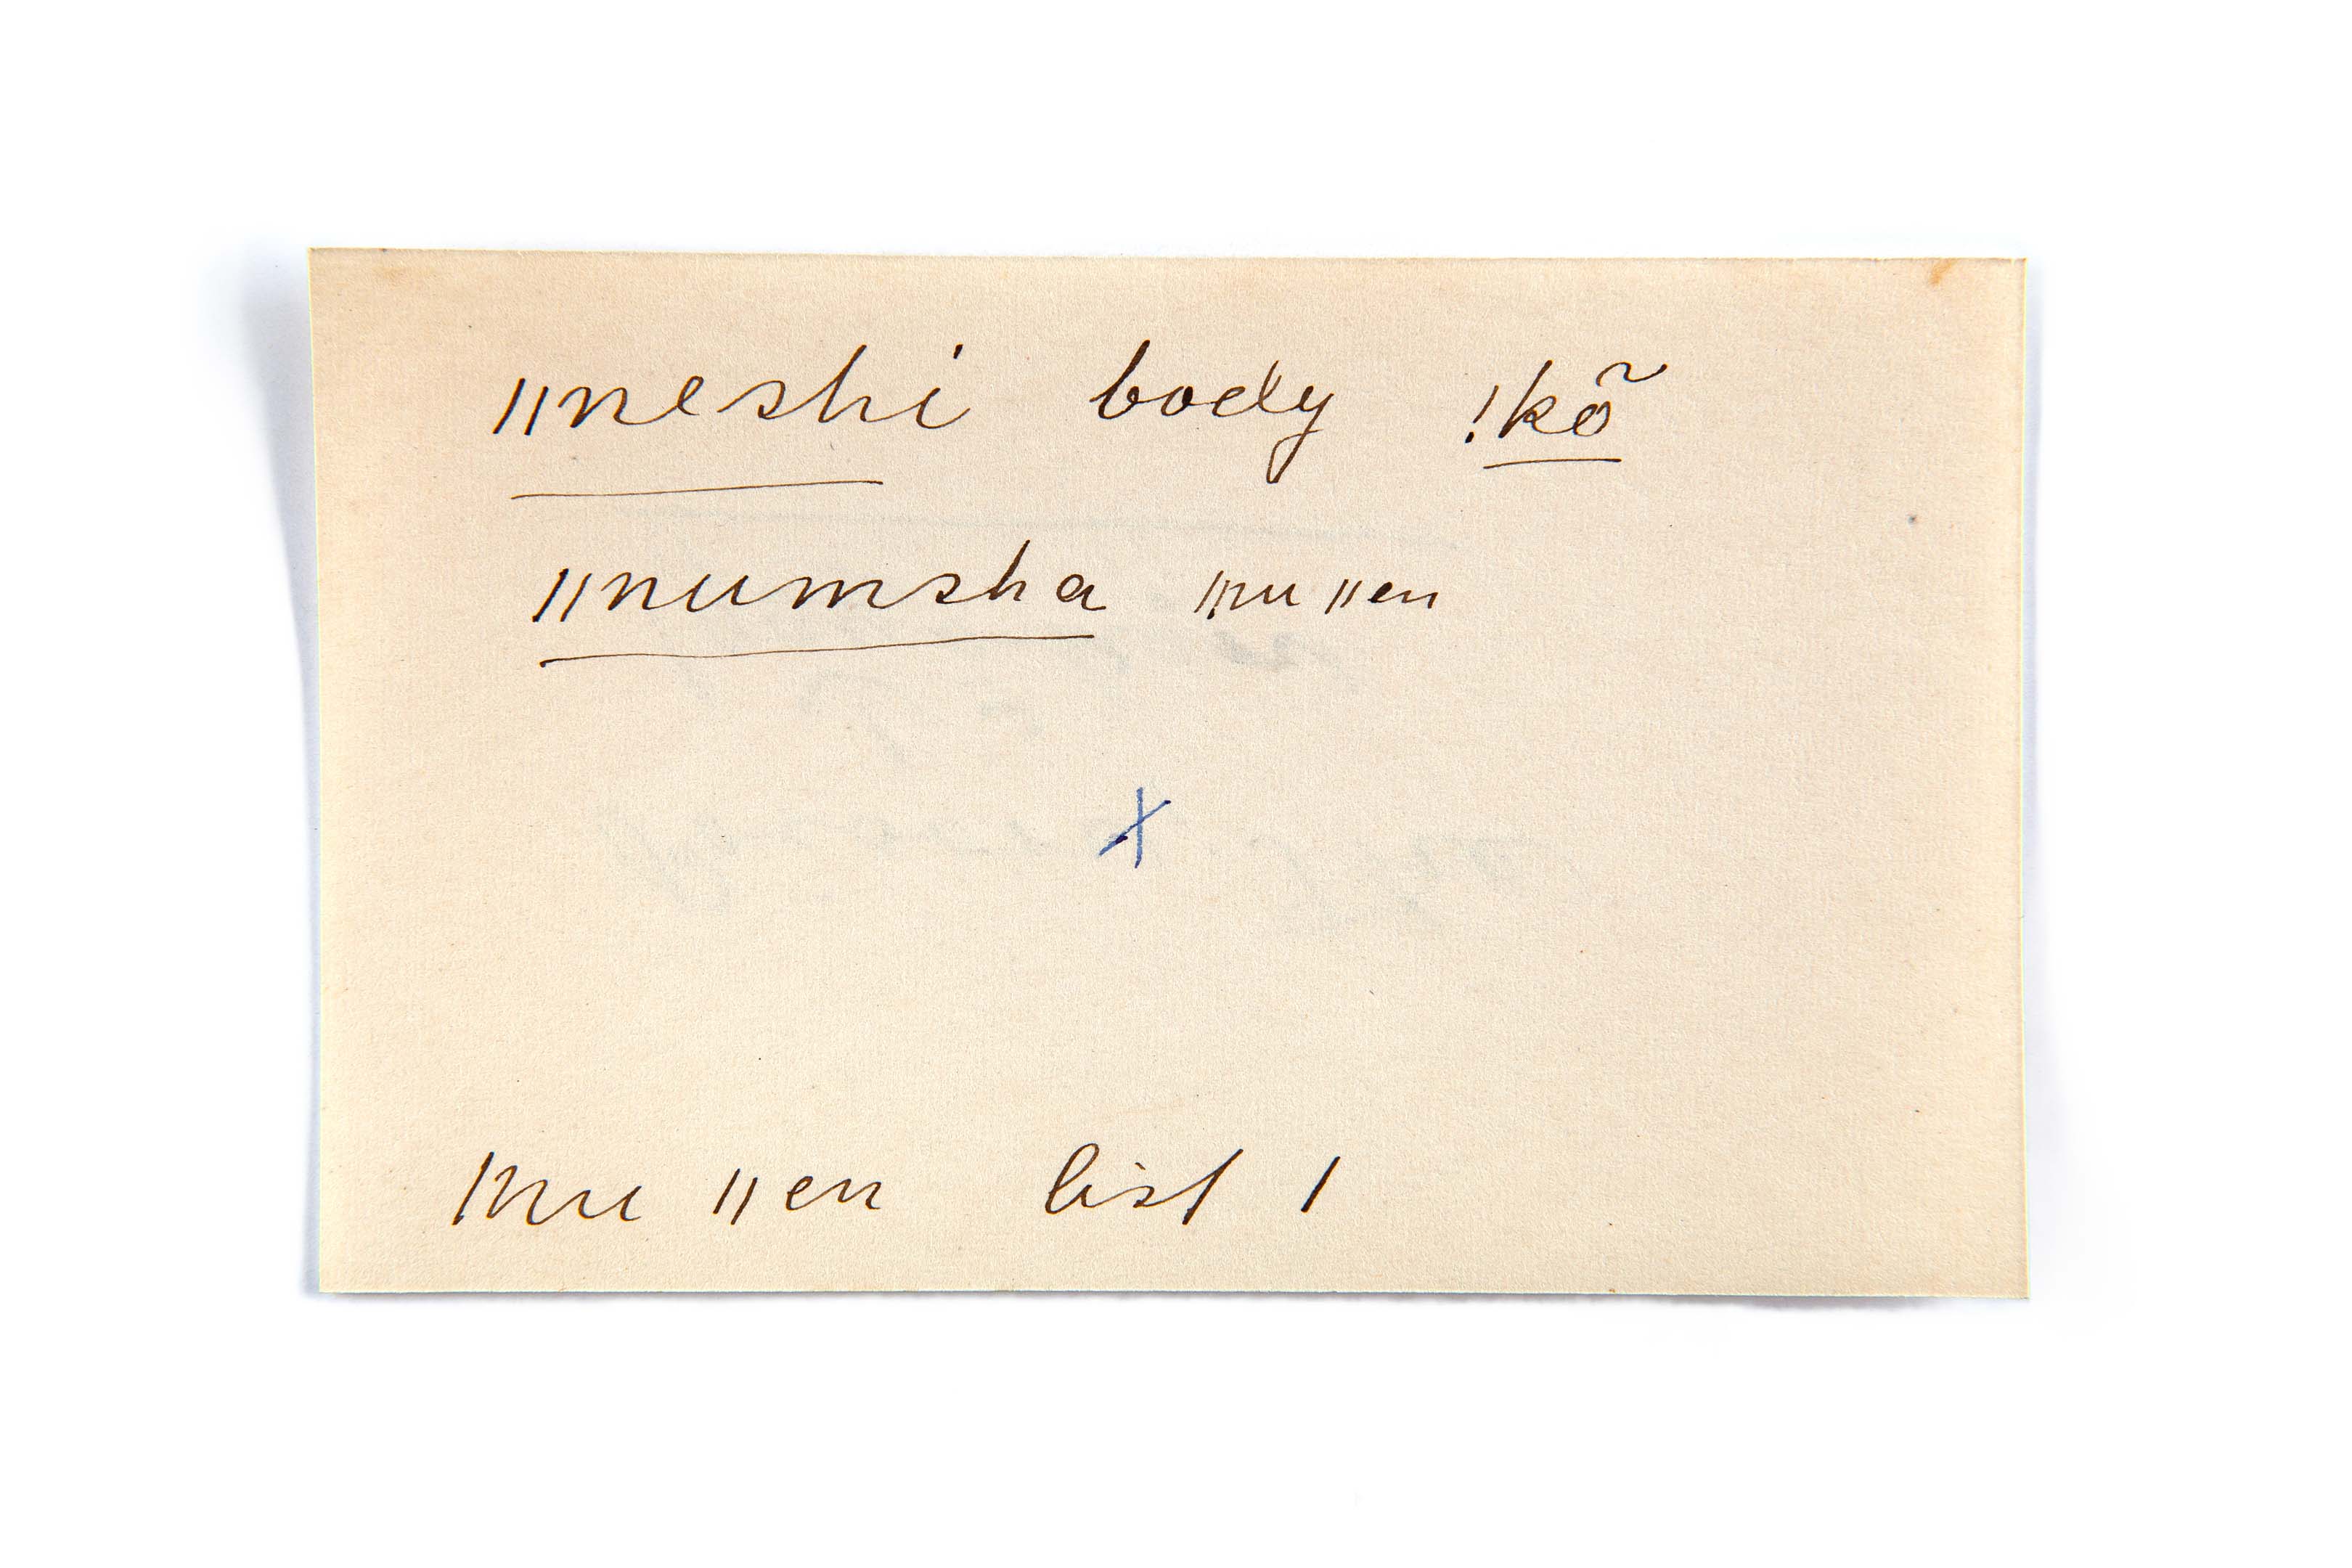 ǁneshi body !kõ
ǁnumsha ǀnu ǁen
x
ǀnu ǁen list 1